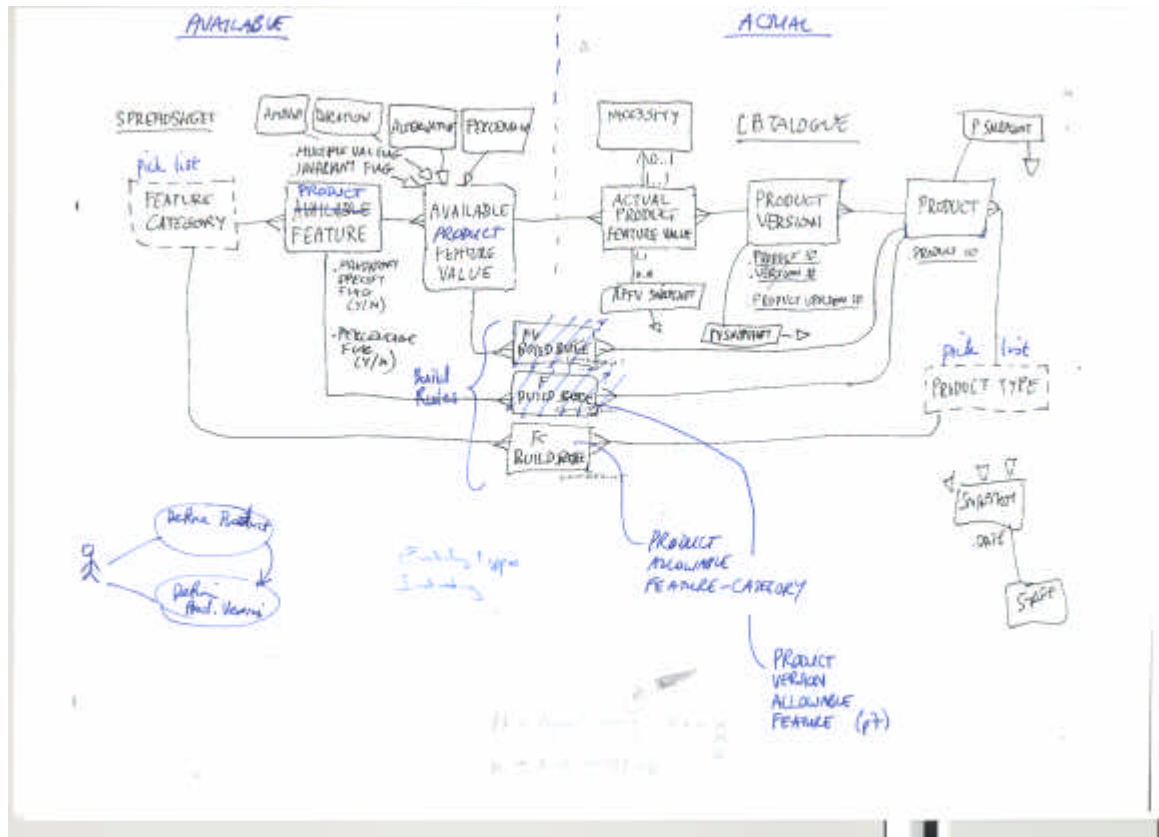 AVAILABLE
ACTUAL
SPREADSHEET
DURATION
ALTERNATIVE
NECESSITY
CATALOGUE
P SNAPSHOT
MULTIPLE VAL FLAG
INVARIANT FLAG
pick list
FEATURE
CATEGORY
PRODUCT
AVAILABLE
FEATURE
AVAILABLE
PRODUCT
FEATURE
VALUE
0..1
ACTUAL
PRODUCT
FEATURE VALUE
PRODUCT
VERSION
PRODUCT
PRODUCT ID
.MANDATORY
SPECIFY
FLAG
(Y/N)
.PERCENTAGE
FLAG
(Y/N)
APFV SNAPSHOT
.PRODUCT ID
.VERSION #
PRODUCT VERSION ID
PV SNAPSHOT
BUILD RULE
F
BUILD RULE
FC
BUILD RULE
Build
Rules
pick list
PRODUCT TYPE
SNAPSHOT
.DATE
STAFF
Define Product
Define
Prod. Version
PRODUCT
ALLOWABLE
FEATURE-CATEGORY
PRODUCT
VERSION
ALLOWABLE
FEATURE (p7)